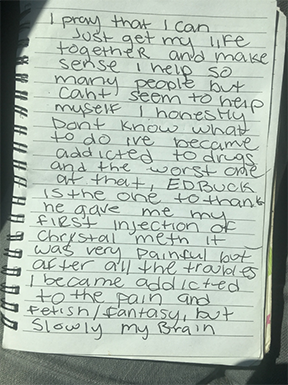 I pray that I can
Just get my life
together and make
sense I help so
many people but
cant seem to help
myself I honestly
Dont know what
to do ive became
addicted to drugs
and the worst one
at that, ED BUCK
is the one to thank
he gave me my
first injection of
Chrystal meth it
was very painful but
after all the troubles
I became addicted
to the pain and
fetish/fantasy, but
slowly my Brain